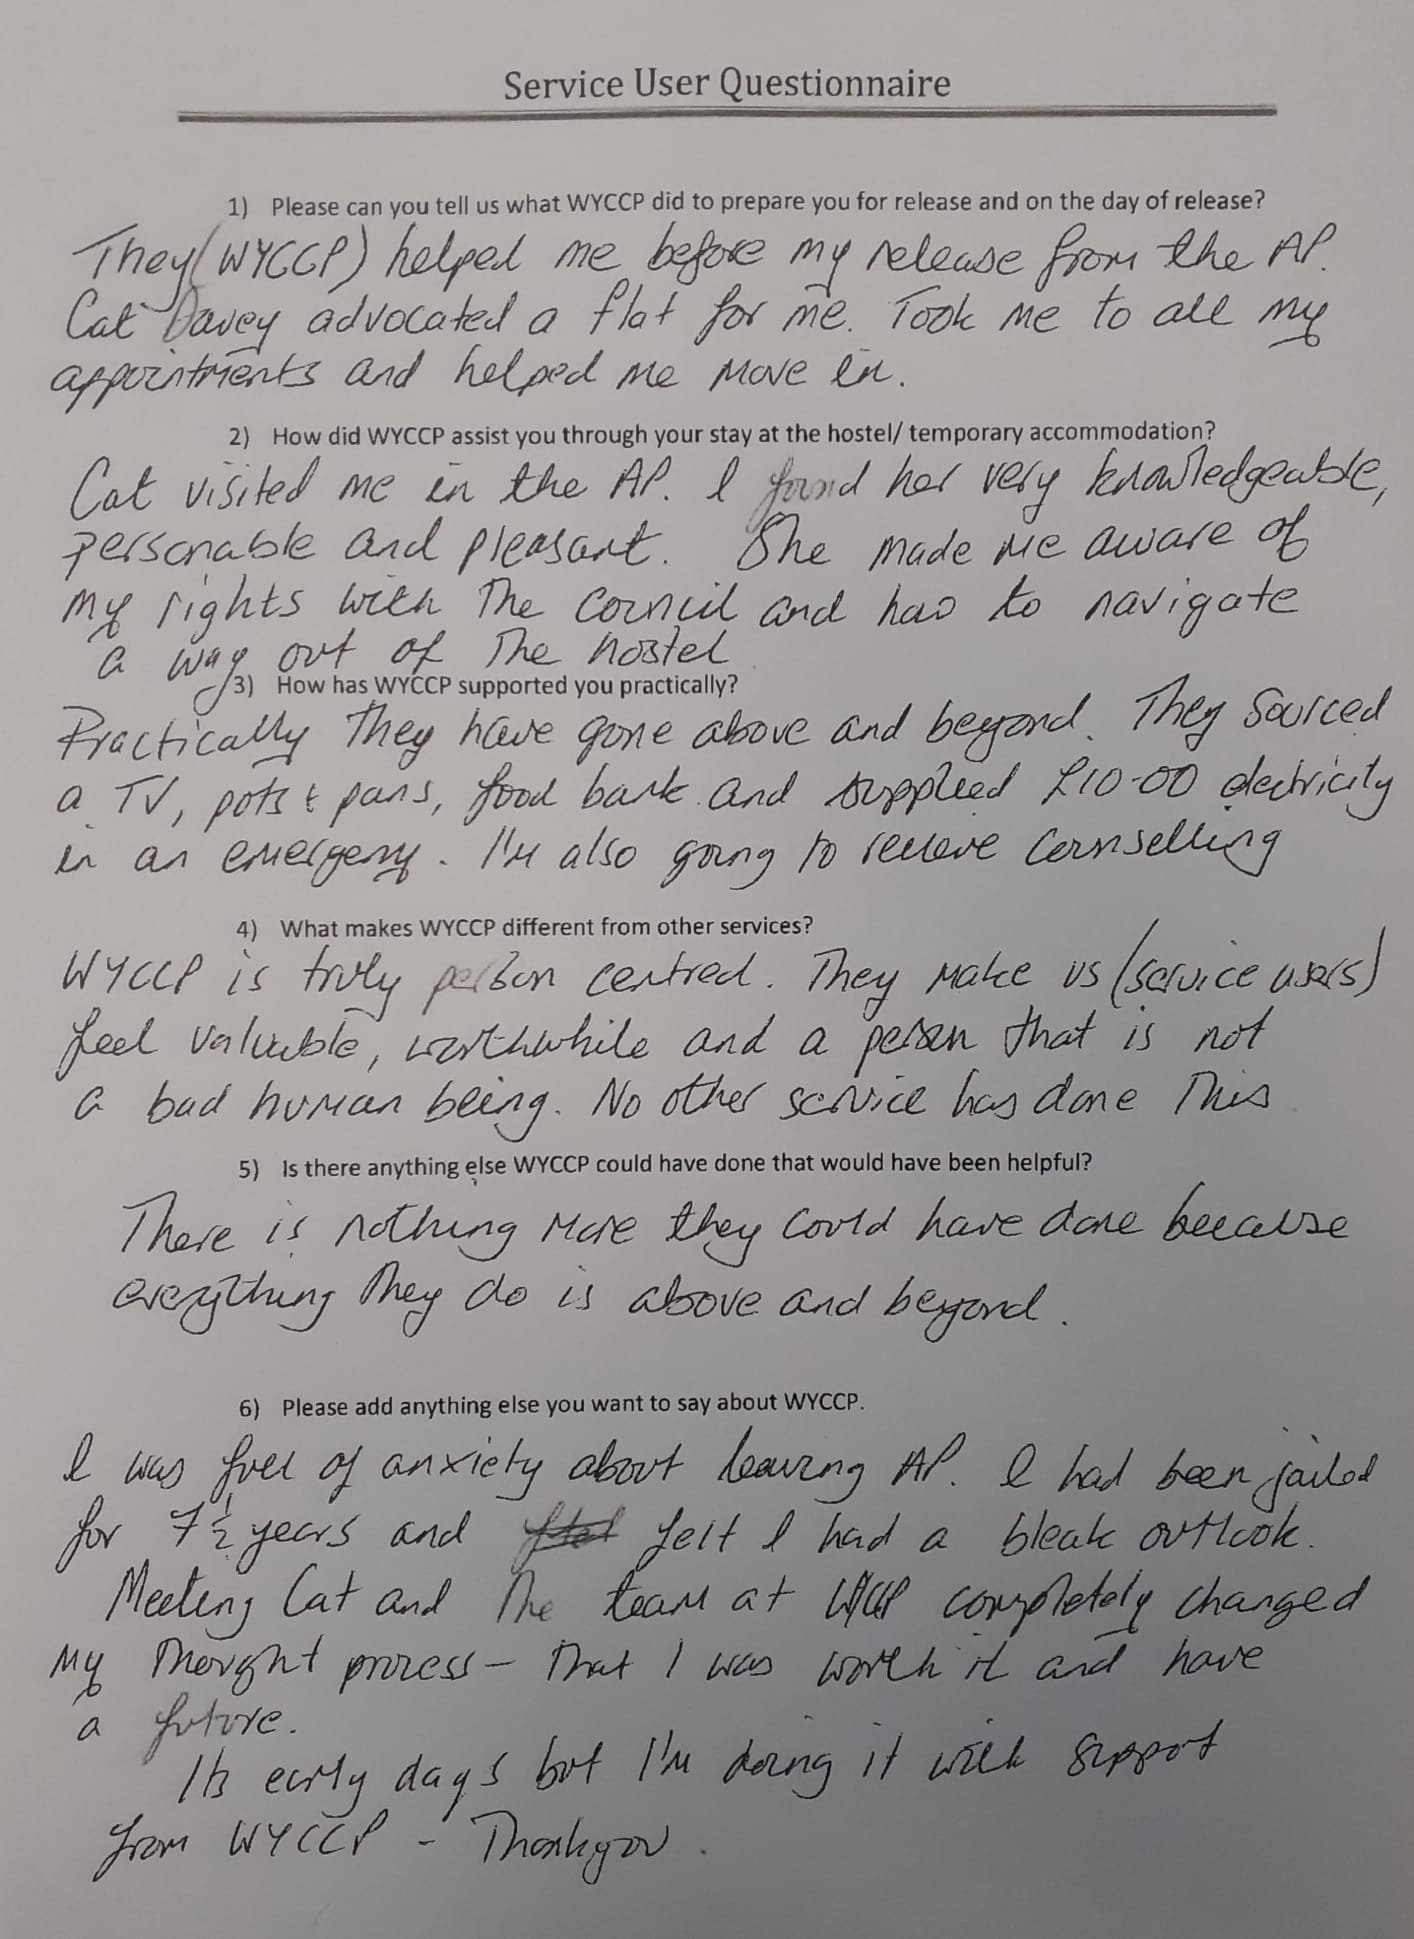 Service User Questionnaire
1) Please can you tell us what WYCCP did to prepare you for release and on the day of release?
They (WYCCP) helped me before my release from the AP.
Cat Davey advocated a flat for me. Took me to all my
appointments and helped me move in.
2) How did WYCCP assist you through your stay at the hostel/ temporary accommodation?
Cat visited me in the AP. I found her very knowledgeable,
personable and pleasant. She made me aware of
my rights with the council and how to navigate
a way out of the hostel
3) How has WYCCP supported you practically?
Practically they have gone above and beyond. They sourced
a TV, pots & pans, food bank and supplied £10-00 electricity
in an emergency. I'm also going to receive counselling
4) What makes WYCCP different from other services?
WYCCP is truly person centred. They make us (service users)
feel valuable, worthwhile and a person that is not
a bad human being. No other service has done this
5) Is there anything else WYCCP could have done that would have been helpful?
There is nothing more they could have done because
everything they do is above and beyond.
6) Please add anything else you want to say about WYCCP.
I was full of anxiety about leaving AP. I had been jailed
for 7½ years and felt I had a bleak outlook.
Meeting Cat and the team at WYCCP completely changed
my thought process – that I was worth it and have
a future.
Its early days but I'm doing it with support
from WYCCP - Thankyou.